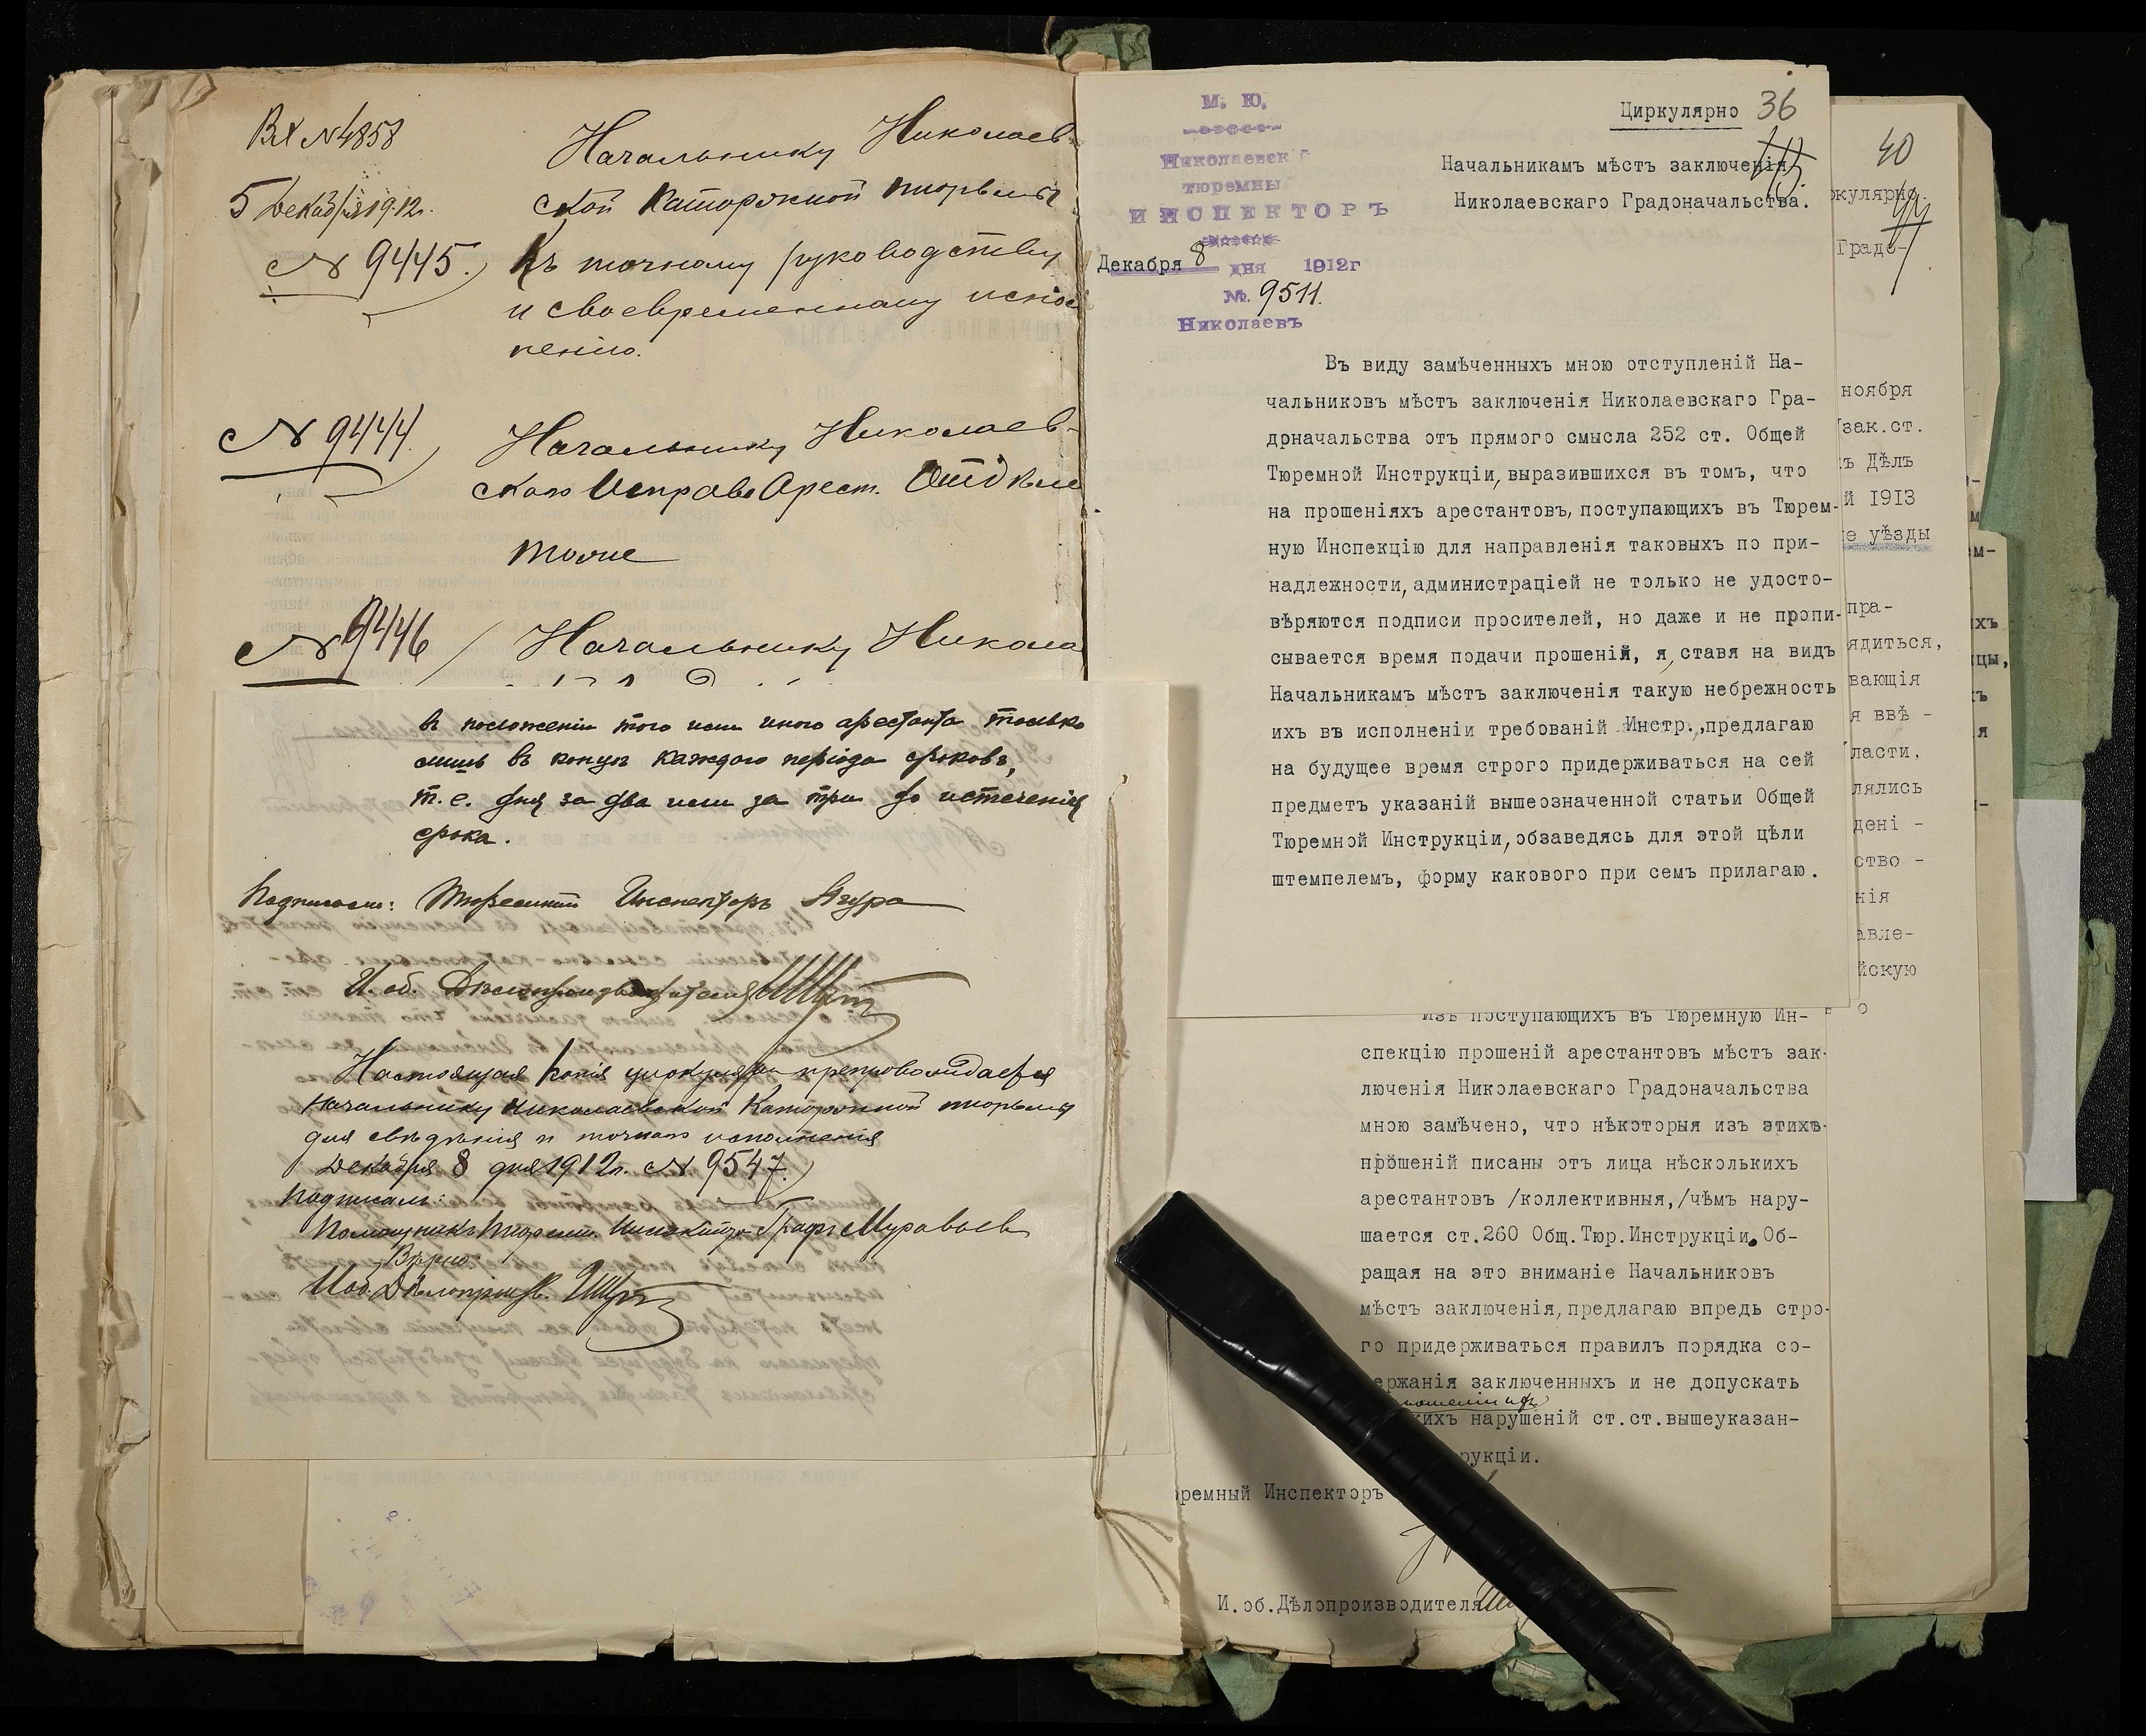 Вх №4858
5 декабря 1912г.
№ 9445.
Начальнику Николаев-
ской Каторжной тюрьмы
Къ точному руководству
и своевременному испол
ненію.
№ 9444.
Начальнику Николаев-
скаго Исправ Арест. Отдѣле
тоже
№ 9446
Начальнику Никола
въ положеніи того или иного арестанта только
лишь въ концѣ каждаго періода сроковъ,
т.е. дня за два или за три до истеченія
срока.
Подписали: Тюремный Инспекторъ Ягура
И. об. Дѣлопроизводителя
Настоящая копія циркуляра препровождается
Начальнику Николаевской Каторжной тюрьмы
для свѣдѣнія и точнаго исполненія
Декабря 8 дня 1912г. № 9547.
Подписалъ:
Помощникъ Тюремн. Инспектора Графъ Муравьевъ
Вѣрно:
И об. Дѣлопроизв.
М. Ю.
Николаевск
тюремны
ИНСПЕКТОРЪ
Декабря 8 дня 1912г
№. 9511.
Николаевъ
Циркулярно 36
Начальникамъ мѣстъ заключенія
Николаевскаго Градоначальства.
Въ виду замѣченныхъ мною отступленій На-
чальниковъ мѣстъ заключенія Николаевскаго Гра-
дрначальства отъ прямого смысла 252 ст. Общей
Тюремной Инструкціи, выразившихся въ томъ, что
на прошеніяхъ арестантовъ, поступающихъ въ Тюрем-
ную Инспекцію для направленія таковыхъ по при-
надлежности, администраціей не только не удосто-
вѣряются подписи просителей, но даже и не пропи-
сывается время подачи прошеній, я, ставя на видъ
Начальникамъ мѣстъ заключенія такую небрежность
ихъ въ исполненіи требованій Инстр., предлагаю
на будущее время строго придерживаться на сей
предметъ указаній вышеозначенной статьи Общей
Тюремной Инструкціи, обзаведясь для этой цѣли
штемпелемъ, форму какового при семъ прилагаю.
Изъ поступающихъ въ Тюремную Ин-
спекцію прошеній арестантовъ мѣстъ зак-
люченія Николаевскаго Градоначальства
мною замѣчено, что нѣкоторыя изъ этихъ
прошеній писаны отъ лица нѣсколькихъ
арестантовъ /коллективныя,/чѣмъ нару-
шается ст.260 Общ.Тюр.Инструкціи. Об-
ращая на это вниманіе Начальниковъ
мѣстъ заключенія, предлагаю впредь стро-
го придерживаться правилъ порядка со-
ержанія заключенныхъ и не допускать
кихъ нарушеній ст.ст.вышеуказан-
рукціи.
ремный Инспекторъ
И.об.Дѣлопроизводителя
40
ркулярно.
Градо-
ноября
зак.ст.
ъ Дѣлъ
й 1913
е уѣзды
пра-
ядиться,
вающія
я ввѣ -
ласти,
лялись
дені -
ство -
нія
авле-
йскую
о